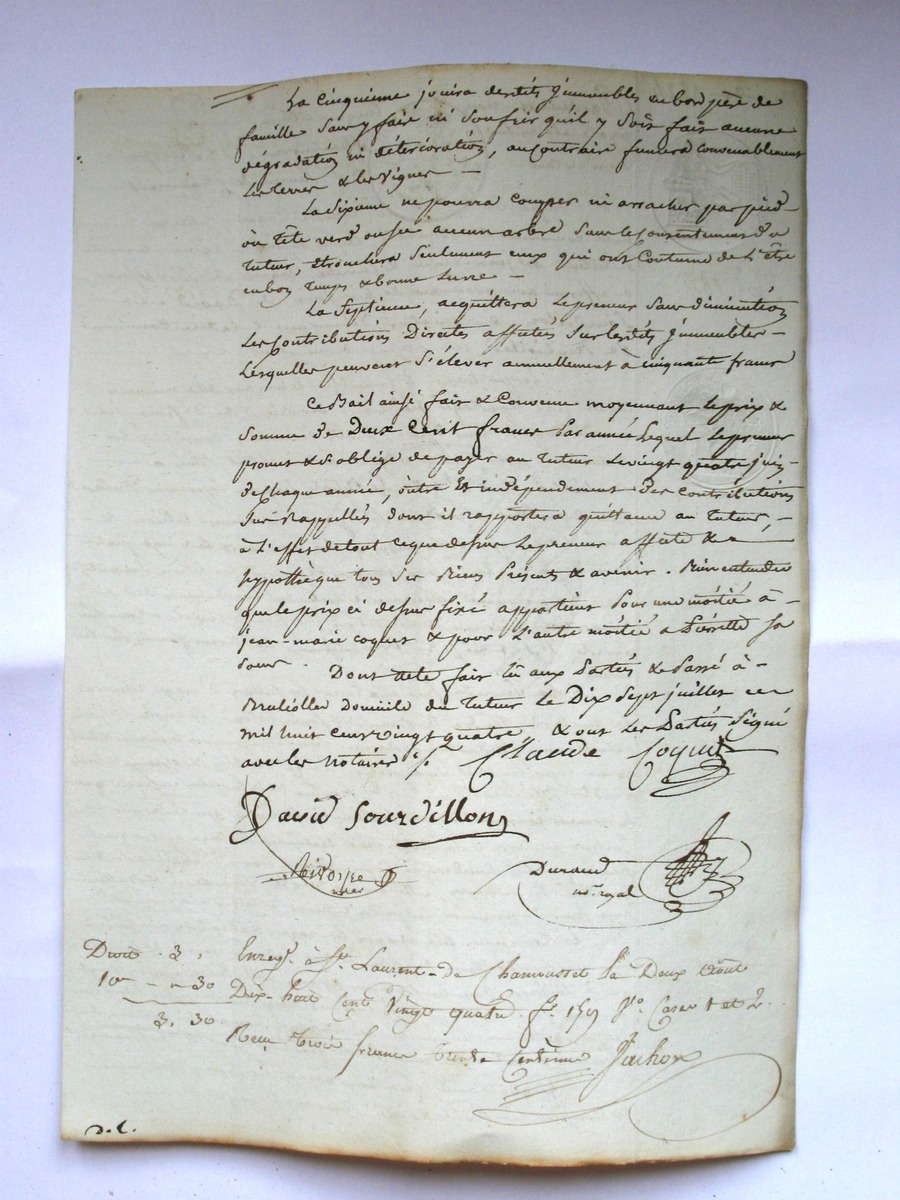 La cinquieme jouira desdits Immeubles en bon père de
famille sans y faire ni souffrir qu'il y soit fait aucune
dégradation ni détérioration, au contraire fumera convenablement
les terres & les vignes —
La sixieme ne pourra couper ni arracher par pied
ou tête verd ou sec aucun arbre sans le consentement du
tuteur, étronchera seulement ceux qui ont coutume de l'être
en bon temps & bonne lune —
La septieme, acquittera le preneur sans diminution
les contributions Directes affectés sur lesdits Immeubles —
lesquelles peuvent s'élever annuellement à cinquante francs
Ce Bail ainsi fait & convenu moyennant le prix &
somme de Deux Cent francs par année lequel le preneur
promet & s'oblige de payer au tuteur le vingt quatre juin
de chaque année, outre et indépendament des contributions
sus Rappellés dont il rapportera quittance au tuteur, —
à l'effet de tout ce que dessus le preneur affecte &
hypothèque tous ses Biens Présents & avenir. Bien entendu
que le prix ci dessus fixé appartient pour une moitié à —
jean-marie coquet & pour l'autre moitié a Pierrette sa
soeur. Dont acte fait lû aux Parties & Passé à —
Brulliolles Domicile du tuteur le Dix sept juillet
mil huit cent vingt quatre, & ont les Parties signé
avec les notaires ./. Claude Coquet
David Sourdillon
Durand
nre. royal
Droit . 3,
10e — " 30
3, 30
Enregt. à St. Laurent-de Chamousset le Deux Août
Dix-huit Cent Vingt quatre. fo. 159 Vo. Cases 1 et 2.
Reçu trois francs trente centimes Jachon